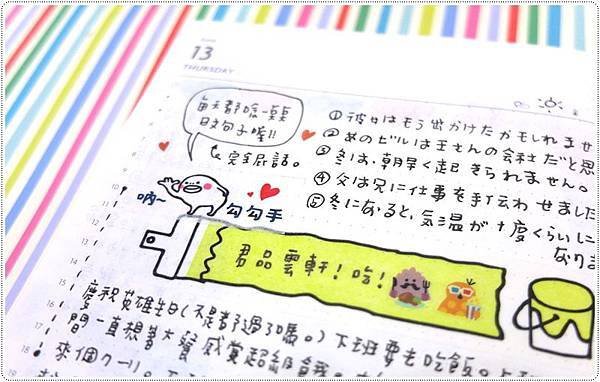 13
THURSDAY
每天都唸一頁
日文句子喔!!
完全屁話。
吶~
勾勾手
①彼女はもう出かけたかもしれませ
②あのビルは王さんの会社だと思
③冬は、朝早く起きられません。
④父は兄に仕事を手伝わせました
⑤冬になると、気温が十度くらいに
なりま
君品雲軒!吃!
慶祝英雄生日(不是都過了嗎。)下班要去吃飯。
間一直想著大餐
來個クーリ。
10
11
12
13
14
15
16
17
18